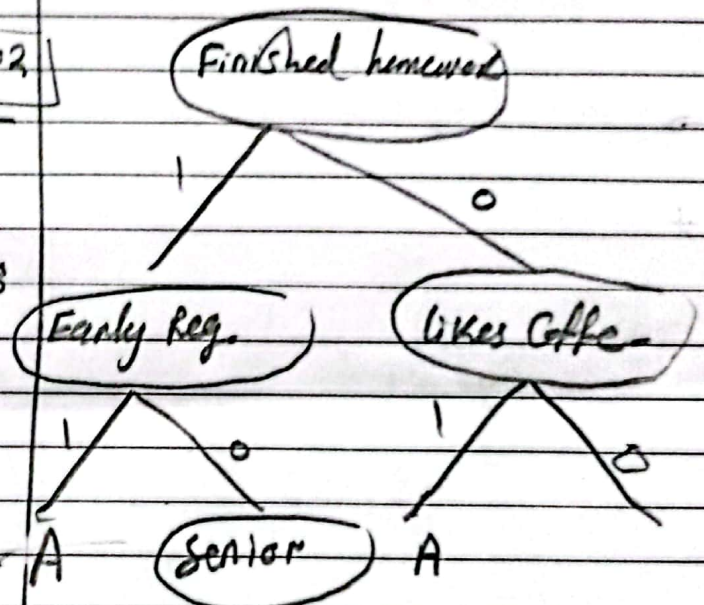 02
Finished homework
1
0
Early Reg.
likes Coffe
1
0
1
0
A
Senior
A